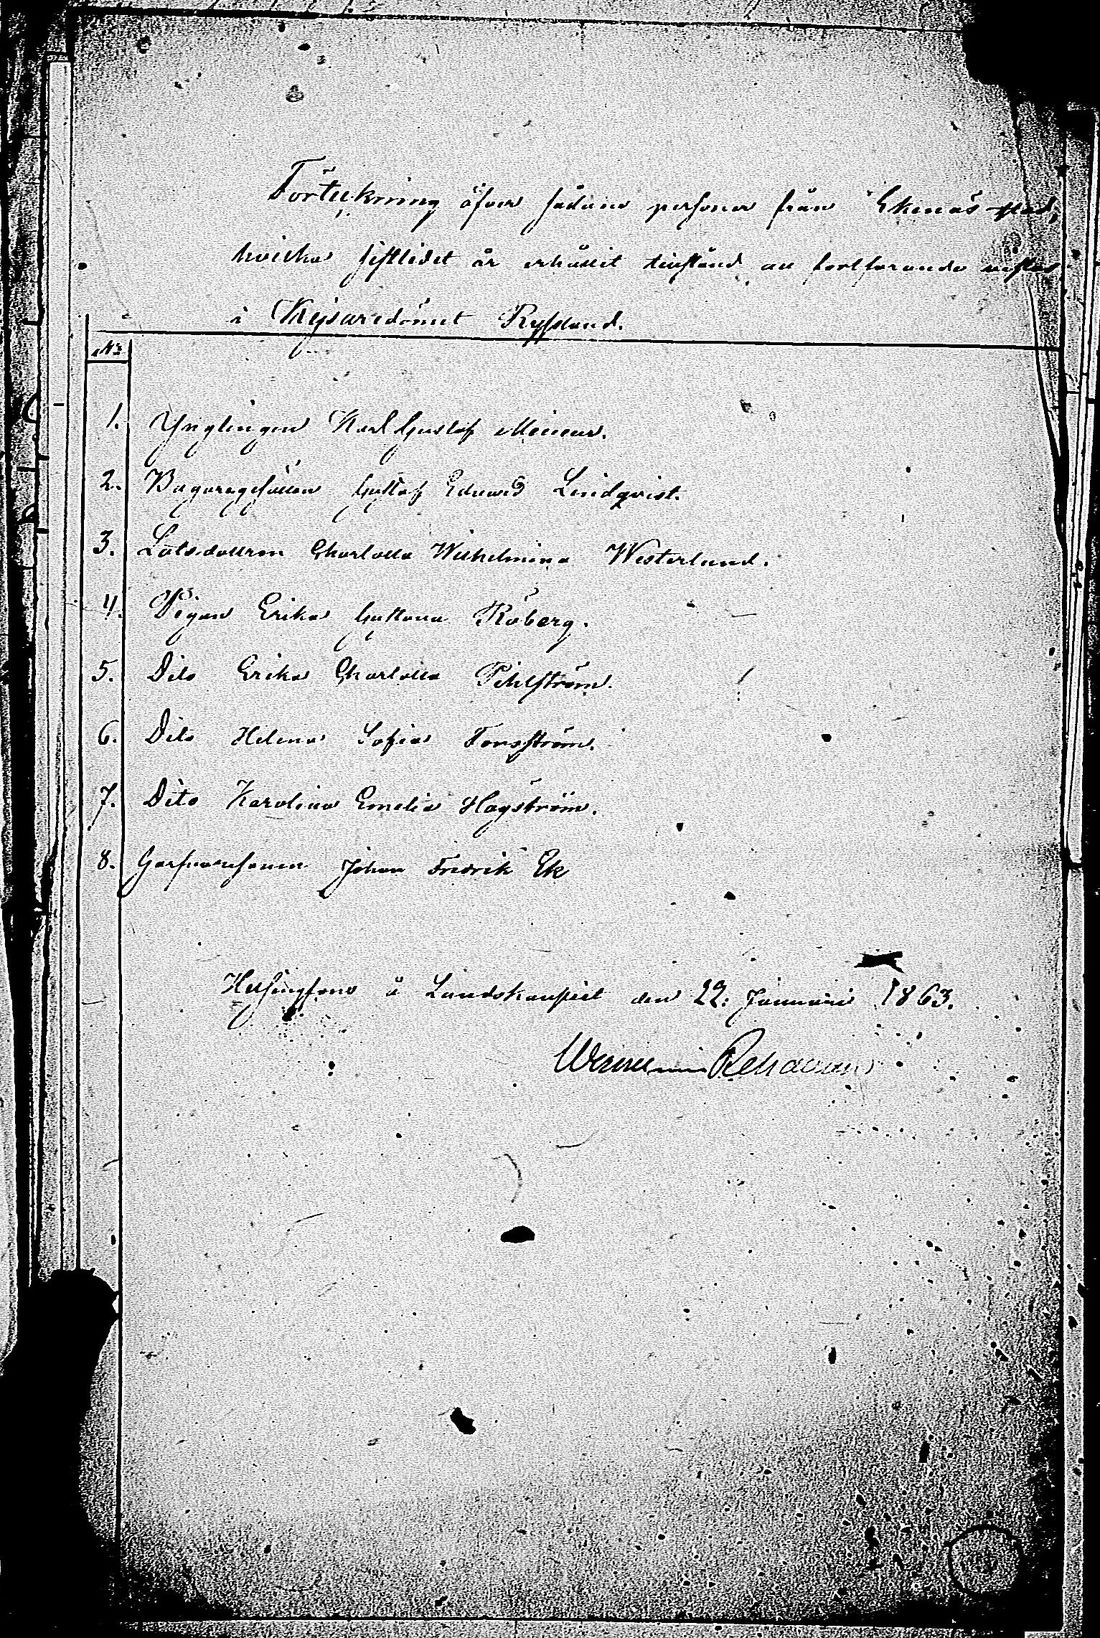 Förteckning öfver sådane personer från Ekenäs stad,
hvilka sistlidet år erhållit tillstånd att fortfarande vistas
i Kejsaredömet Ryssland.
No
1. Ynglingen Karl Gustaf
2. Bagaregesällen Gustaf Edvard Lindqvist.
3. Lotsdottren Charlotta Wilhelmina Westerlund.
4. Pigan Erika Gustava Roberg.
5. Dito Erika Charlotta Pihlström.
6. Dito Helena Sofia Forsström.
7. Dito Karolina Emelia Hagström.
8. Garfvaresonen Johan Fredrik Ek
Helsingfors å Landskansliet den 22: Januari 1863.